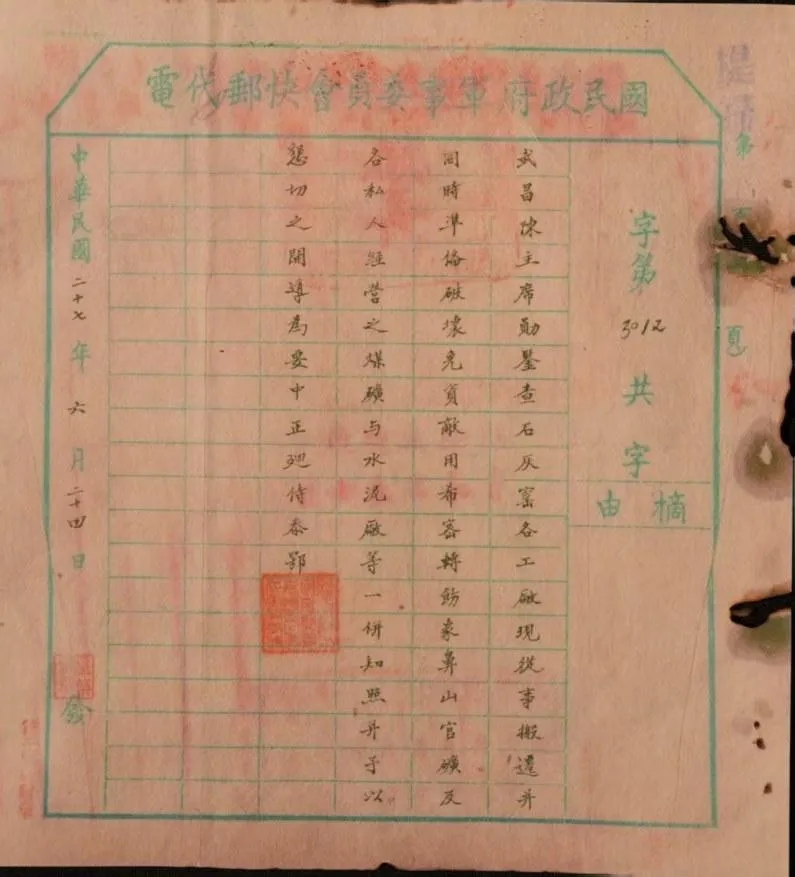 國民政府軍事委員會快郵代電
第 頁
字第 3012 共 字
摘由
武昌陳主席勛鑒查石灰窑各工廠現從事搬遷并
同時準俻破壞免資敵用希密轉飭象鼻山官礦及
各私人經營之煤礦与水泥廠等一併知照并予以
懇切之開導為要中正廻侍叅鄂
中華民國二十七年六月二十四日 發